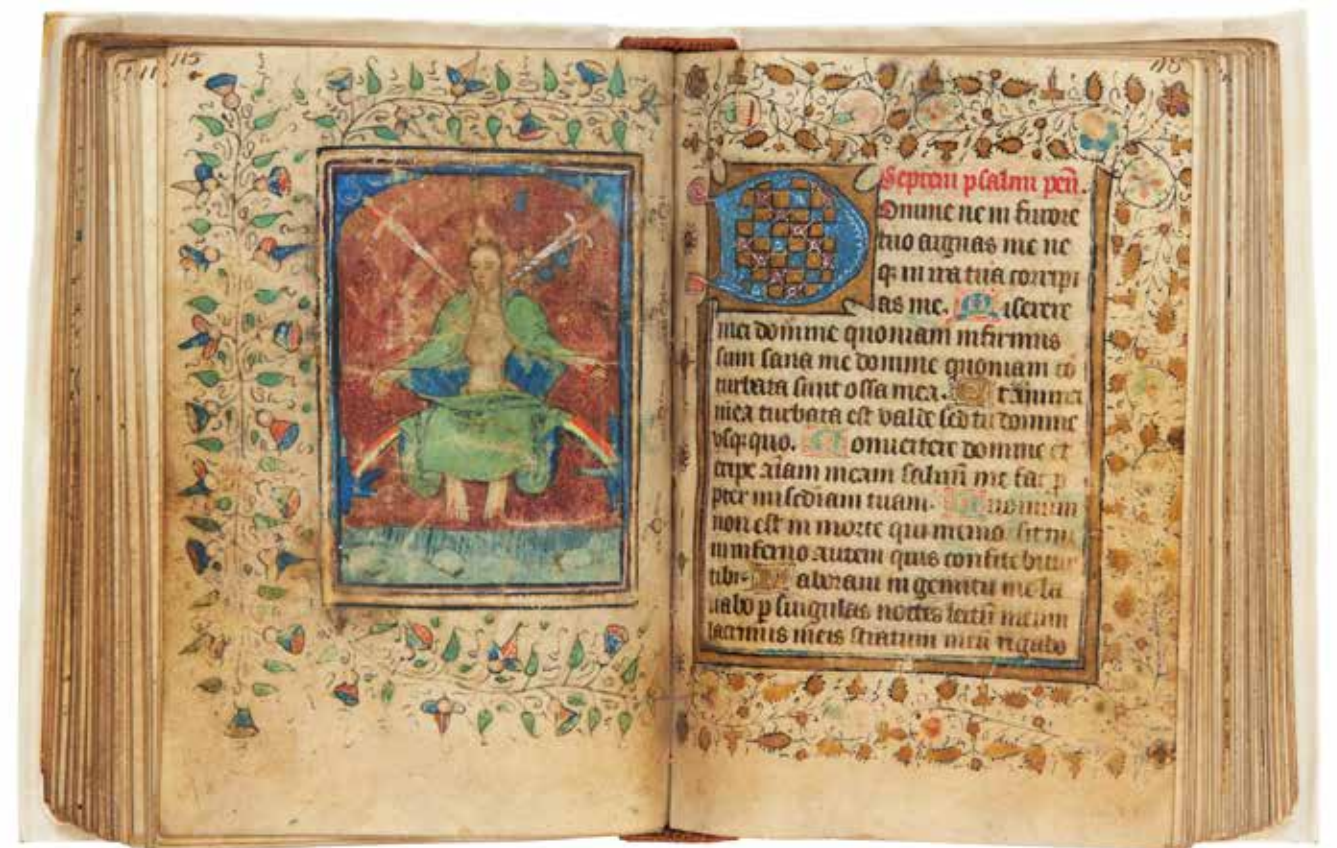 115
115
Septem psalmi peñ.
Domine ne in furore
tuo arguas me ne
q; in ira tua corripi
as me. Miserere
mei domine quoniam infirmus
sum sana me domine quoniam cō
turbata sunt ossa mea. Et anima
mea turbata est valde sed tu domine
vsq;quo. Conuertere domine et
eripe aīam meam saluū me fac p
pter miscdiam tuam. Quoniam
non est in morte qui memor sit tui
in inferno autem quis confitebitur
tibi. Laboraui in gemitu meo la
uabo p singulas noctes lectū meum
lacrimis meis stratum meū rigabo